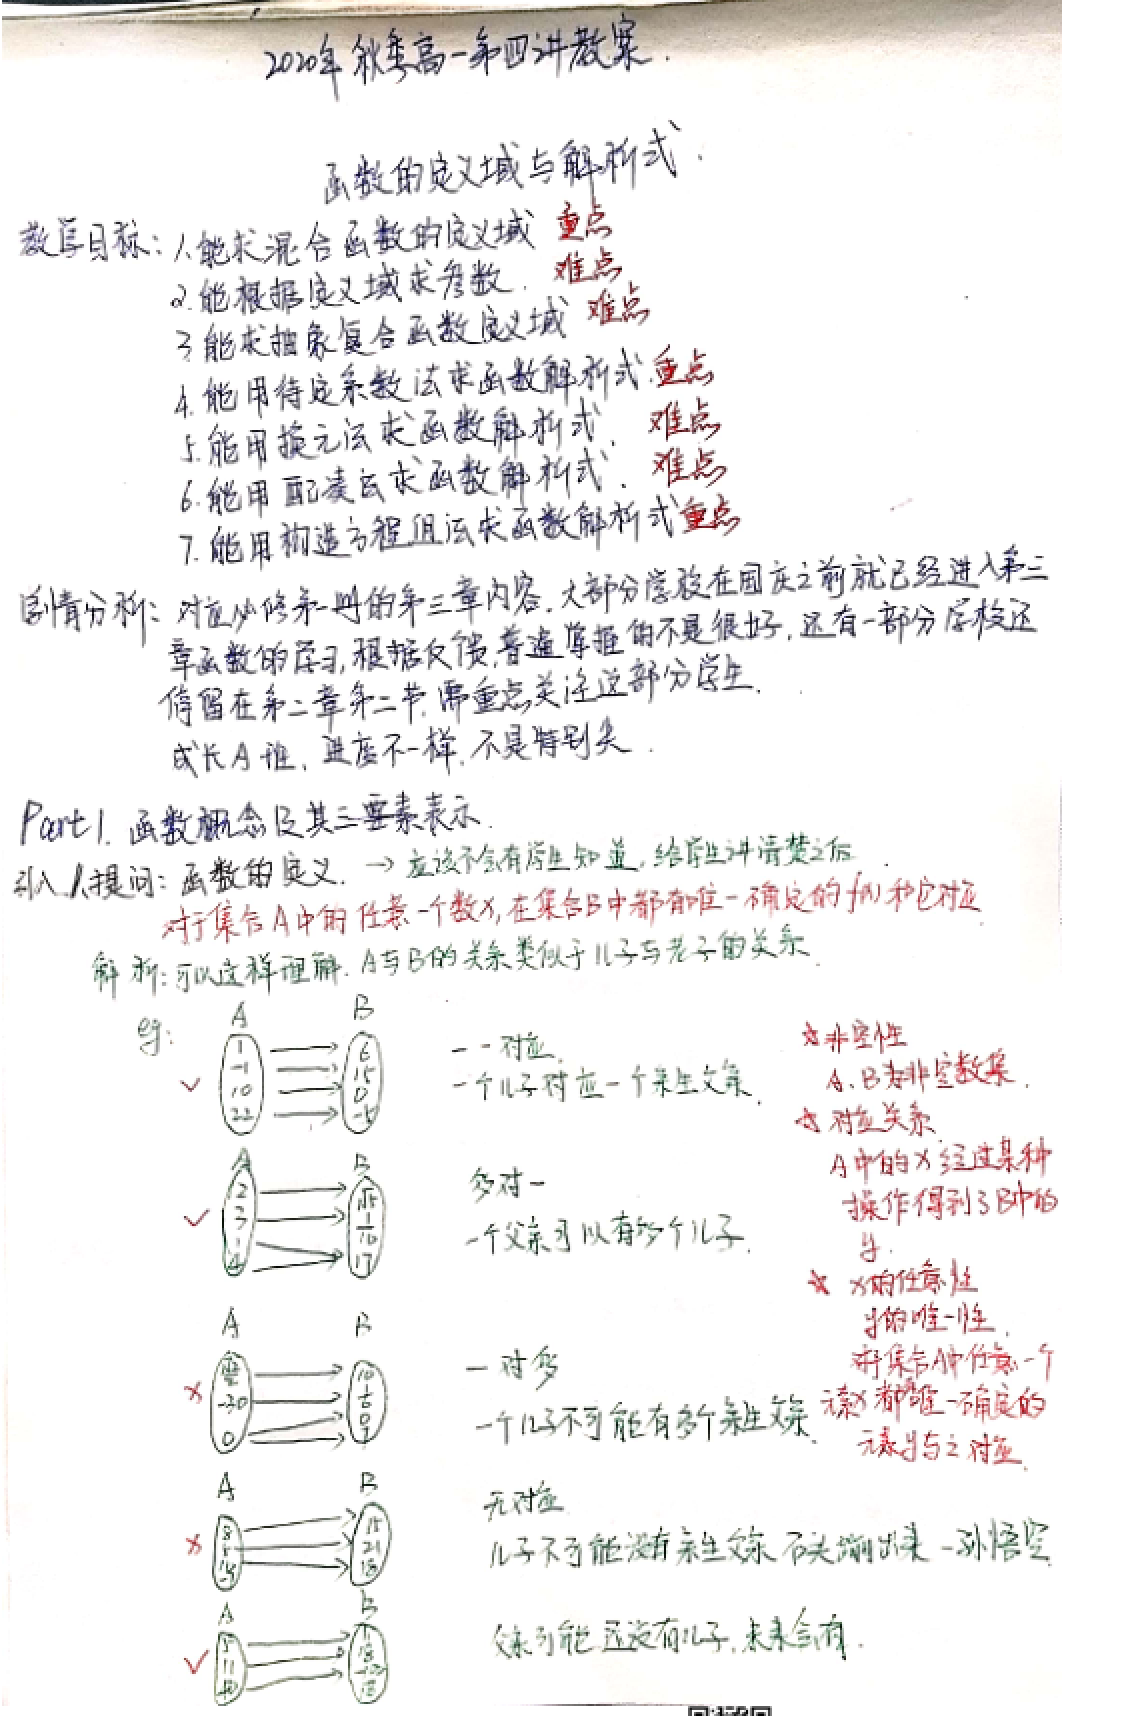 2020年秋季高一第四讲教案.
函数的定义域与解析式.
教学目标: 1.能求混合函数的定义域 重点
2.能根据定义域求参数. 难点
3.能求抽象复合函数定义域 难点
4.能用待定系数法求函数解析式.重点
5.能用换元法求函数解析式. 难点
6.能用配凑法求函数解析式. 难点
7.能用构造方程组法求函数解析式重点
学情分析: 对应必修第一册的第三章内容.大部分学校在国庆之前就已经进入第三
章函数的学习,根据反馈,普遍掌握的不是很好,还有一部分学校还
停留在第二章第二节.需重点关注这部分学生.
成长A班,进度不一样,不是特别失.
Part1. 函数概念及其三要素表示.
引入 1.提问: 函数的定义. → 应该不会有学生知道,给学生讲清楚之后.
对于集合A中的任意一个数x,在集合B中都有唯一确定的f(x)和它对应
解析:可以这样理解. A与B的关系类似于儿子与老子的关系.
eg: A B
1 -1 10 22
6 15 0
一一对应.
一个儿子对应一个亲生父亲.
☆非空性
A、B为非空数集.
☆对应关系.
A中的x经过某种
操作得到了B中的
y.
☆ x的任意性
y的唯一性.
对于集合A中任意一个
元素x都有唯一确定的
元素y与之对应.
A B
2 3 1 4
√5 1/10 17
多对一
一个父亲可以有多个儿子.
A B
-20 0
一对多
一个儿子不可能有多个亲生父亲.
A B
15 21 18
无对应
儿子不可能没有亲生父亲 石头蹦出来-孙悟空
A B
父亲可能还没有儿子,未来会有.